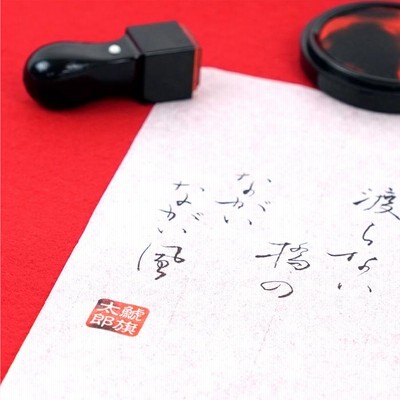 渡らない
橋の
ながい
ながい風
鯱旗
太郎